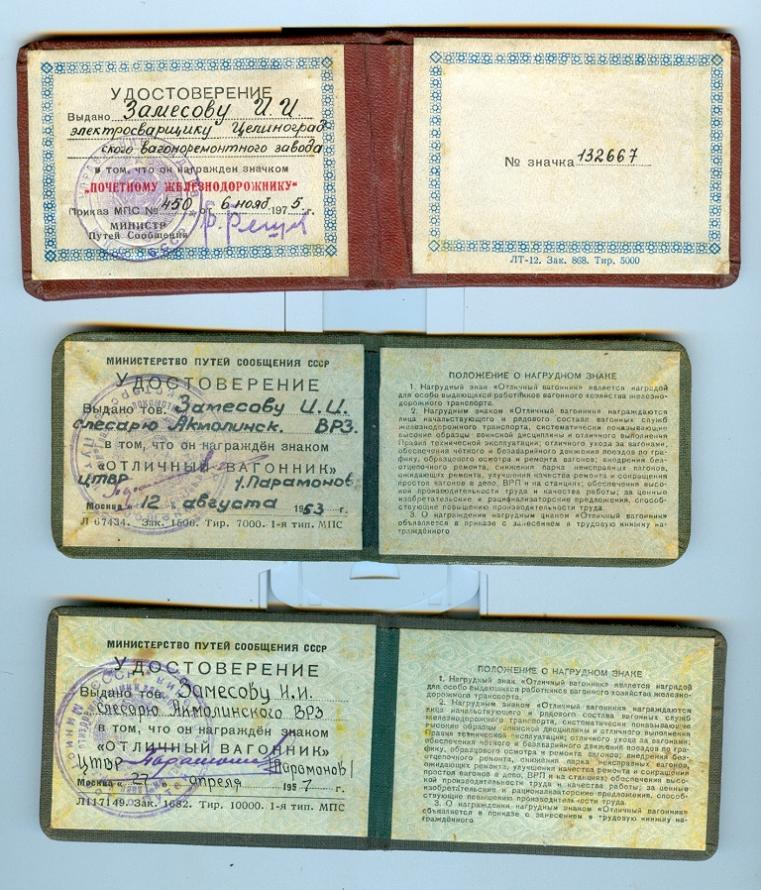 УДОСТОВЕРЕНИЕ
Выдано Замесову И И
электросварщику Целиноград
ского вагоноремонтного завода
в том, что он награжден значком
„ПОЧЕТНОМУ ЖЕЛЕЗНОДОРОЖНИКУ“
Приказ МПС № 450 от 6 нояб 1975. г.
МИНИСТР
Путей Сообщения
№ значка 132667
ЛТ-12. Зак. 868. Тир. 5000
МИНИСТЕРСТВО ПУТЕЙ СООБЩЕНИЯ СССР
УДОСТОВЕРЕНИЕ
Выдано тов. Замесову И.И.
слесарю Акмолинск. ВРЗ.
в том, что он награждён знаком
«ОТЛИЧНЫЙ ВАГОННИК»
ЦТВР Парамонов
Москва « 12 августа 1953 г.
Л 67434. Зак. 1506. Тир. 7000. 1-я тип. МПС
ПОЛОЖЕНИЕ О НАГРУДНОМ ЗНАКЕ
1. Нагрудный знак «Отличный вагонник» является наградой
для особо выдающихся работников вагонного хозяйства железно-
дорожного транспорта.
2. Нагрудным знаком «Отличный вагонник» награждаются
лица начальствующего и рядового состава вагонных служб
железнодорожного транспорта, систематически показывающие
высокие образцы воинской дисциплины и отличного выполнения
Правил технической эксплуатации; отличного ухода за вагонами,
обеспечения чёткого и безаварийного движения поездов по гра-
фику, образцового осмотра и ремонта вагонов; внедрения без-
отцепочного ремонта, снижения парка неисправных вагонов,
ожидающих ремонта, улучшения качества ремонта и сокращения
простоя вагонов в депо, ВРП и на станциях; обеспечения высо-
кой производительности труда и качества работы; за ценные
изобретательские и рационализаторские предложения, способ-
ствующие повышению производительности труда.
3. О награждении нагрудным знаком «Отличный вагонник»
объявляется в приказе с занесением в трудовую книжку на-
граждённого
МИНИСТЕРСТВО ПУТЕЙ СООБЩЕНИЯ СССР
УДОСТОВЕРЕНИЕ
Выдано тов. Замесову И.И.
Слесарю Акмолинского ВРЗ
в том, что он награждён знаком
«ОТЛИЧНЫЙ ВАГОННИК»
ЦТВР Парамонов
Москва « 27 апреля 1957 г.
Л117149. Зак. 1682. Тир. 10000. 1-я тип. МПС
ПОЛОЖЕНИЕ О НАГРУДНОМ ЗНАКЕ
1. Нагрудный знак «Отличный вагонник» является наградой
для особо выдающихся работников вагонного хозяйства железно-
дорожного транспорта.
2. Нагрудным знаком «Отличный вагонник» награждаются
лица начальствующего и рядового состава вагонных служб
железнодорожного транспорта, систематически показывающие
высокие образцы дисциплины и отличного выполнения
Правил технической эксплуатации; отличного ухода за вагонами,
обеспечения чёткого и безаварийного движения поездов по гра-
фику, образцового осмотра и ремонта вагонов; внедрения без-
отцепочного ремонта, снижения парка неисправных вагонов,
ожидающих ремонта, улучшения качества ремонта и сокращения
простоя вагонов в депо, ВРП и на станциях; обеспечения высо-
кой производительности труда и качества работы; за ценные
изобретательские и рационализаторские предложения, способ-
ствующие повышению производительности труда.
3. О награждении нагрудным знаком «Отличный вагонник»
объявляется в приказе с занесением в трудовую книжку на-
граждённого